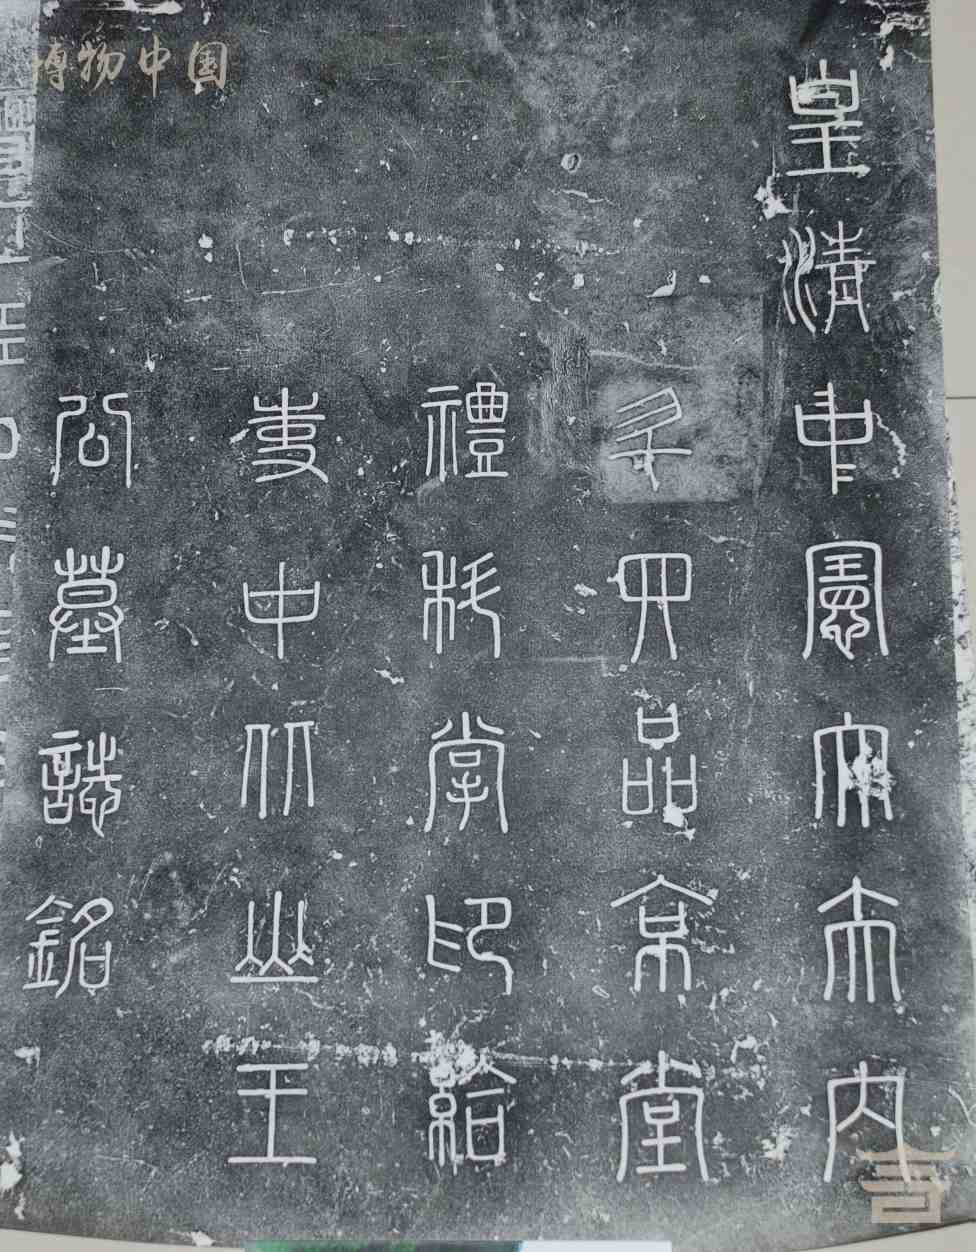 博物中国
皇清中憲大夫内
升四品京堂
禮科掌印給
事中竹山王
公墓誌銘